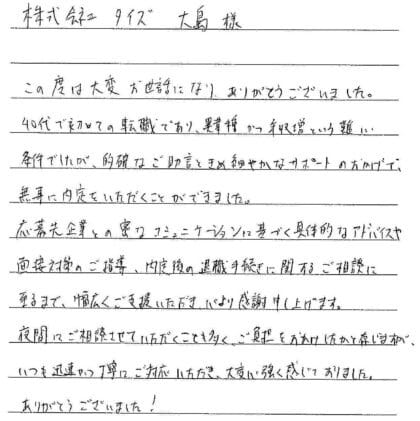 株式会社 タイズ 大島 様
この度は大変 お世話になり、ありがとうございました。
40代で初めての転職であり、異業種かつ年収増という難しい
条件でしたが、的確なご助言ときめ細やかなサポートのおかげで、
無事に内定をいただくことができました。
応募先企業との密なコミュニケーションに基づく具体的なアドバイスや
面接対策のご指導、内定後の退職手続きに関するご相談に
至るまで、幅広くご支援いただき、心より感謝申し上げます。
夜間にご相談させていただくことも多く、ご負担をおかけしたかと存じますが、
いつも迅速かつ丁寧にご対応いただき、大変心強く感じておりました。
ありがとうございました！